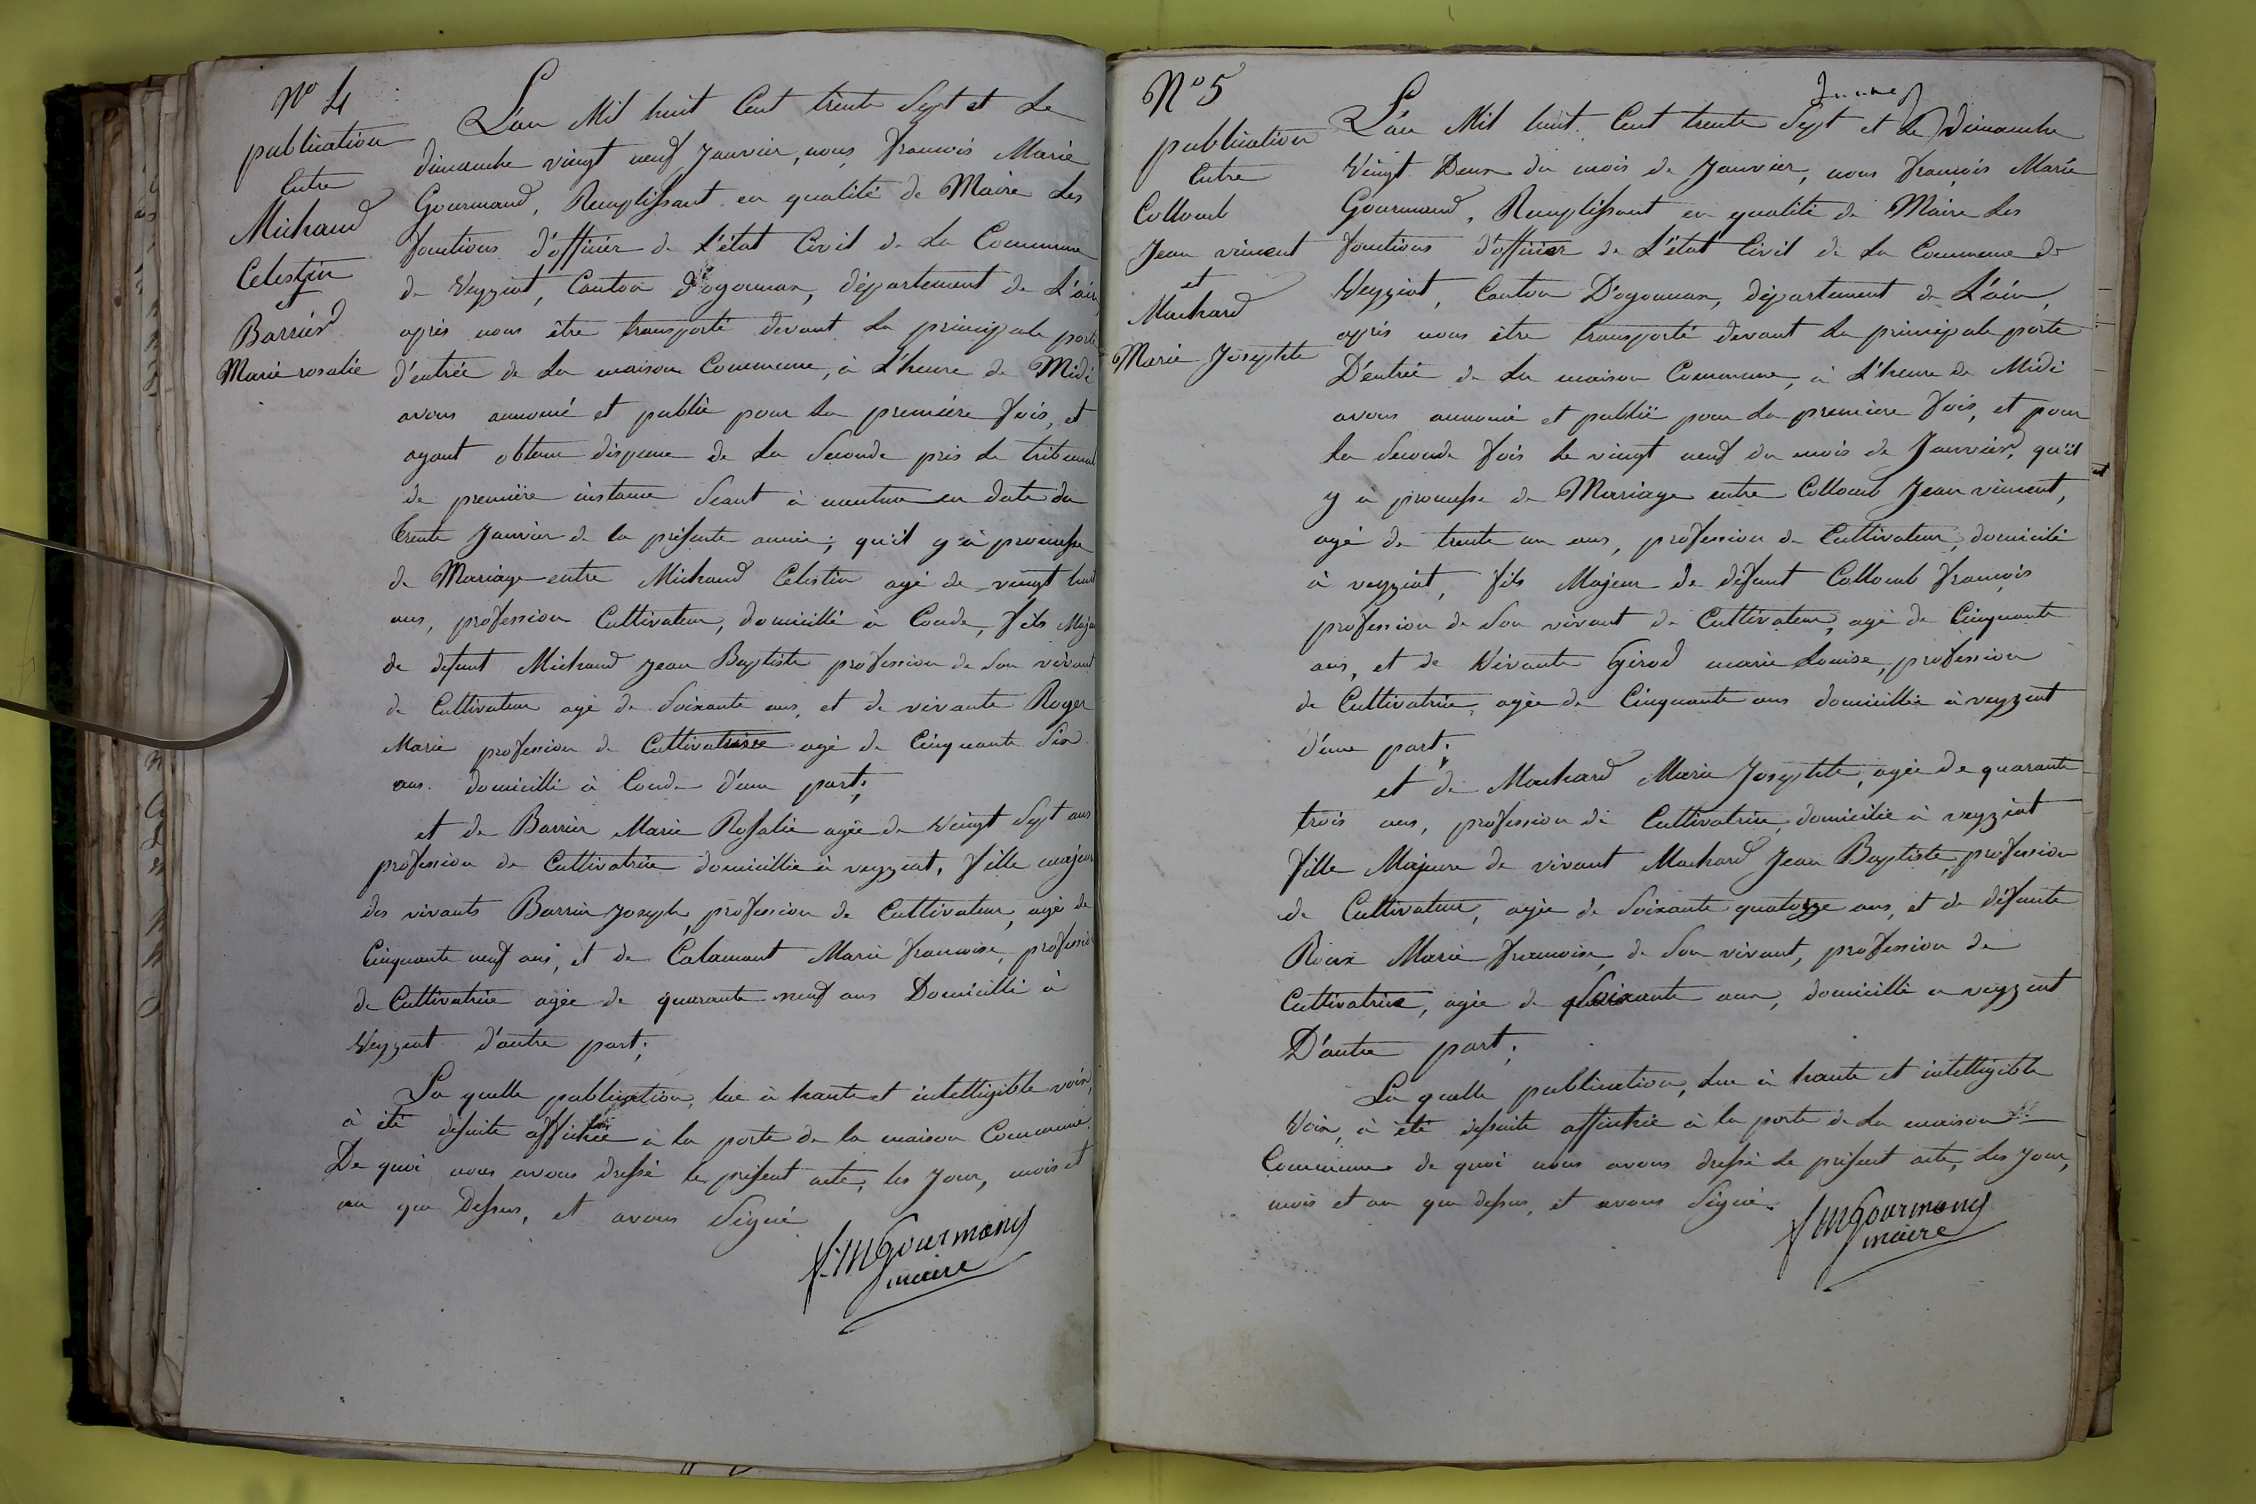 No 4
publication
Entre
Michaud
Celestin
et
Barrier
Marie rosalie
L'an Mil huit Cent trente Sept et Le
dimanche vingt neuf Janvier, nous francois Marie
Gourmand, Remplissant en qualité de Maire Les
fonctions d'officier de L'état Civil de La Commune
de Veyziat, Canton d'ogonnax, département de L'ain
après nous être transporté devant La principale porte
d'entrée de La maison Commune, à L'heure de Midi
avons annoncé et publié pour La première fois, et
ayant obtenu dispense de La Seconde près Le tribunal
de première instance Seant à nantua en date du
trente Janvier de la présente année; qu'il y à promesse
de Mariage entre Michaud Celestin agé de vingt huit
ans, profession Cultivateur, domicillié à Conde, fils Majeur
de defunt Michaud Jean Baptiste profession de Son vivant
de Cultivateur agé de Soixante ans, et de vivante Roger
Marie profession de Cultivatrice agé de Cinquante Six
ans domicillié à Conde d'une part;
et de Barrier Marie Rosalie agée de Vingt Sept ans
profession de Cultivatrice domicilliée à veyziat, fille majeure
des vivants Barrier Joseph, profession de Cultivateur, agé de
Cinquante neuf ans, et de Calamant Marie francoise, profession
de Cultivatrice agée de quarante neuf ans Domicillié à
Veyziat d'autre part;
La quelle publication, lue à haute et intelligible voix,
à été desuite affichée à la porte de la maison Commune.
De quoi nous avons dressé le présent acte, les Jour, mois et
an que Dessus, et avons Signé
f. M Gourmand
maire
No 5
publication
Entre
Collomb
Jean vincent
et
Machard
Marie Josephte
L'an Mil huit Cent trente Sept et Le dimanche
Vingt Deux du mois de Janvier, nous françois Marie
Gourmand, Remplissant en qualité de Maire Les
fonctions d'officier de L'état Civil de La Commune de
Veyziat, Canton D'ogonnax, département de L'ain,
après nous être transporté devant La principale porte
D'entrée de La maison Commune, à L'heure de Midi
avons annoncé et publié pour La première fois, et pour
La Seconde fois Le vingt neuf du mois de Janvier, qu'il
y à promesse de Mariage entre Collomb Jean vincent,
agé de trente un ans, profession de Cultivateur, domicilié
à veyziat, fils Majeur de défunt Collomb françois
profession de Son vivant de Cultivateur, agé de Cinquante
ans, et de Vivante Girod marie Louise, profession
de Cultivatrice, agée de Cinquante ans domicilliée à veyziat
d'une part;
et de Machard Marie Josephte, agée de quarante
trois ans, profession de Cultivatrice, domicilié à veyziat
fille Majeure de vivant Machard Jean Baptiste, profession
de Cultivateur, agée de Soixante quatorze ans, et de défunte
Marie francoise, de Son vivant, profession de
Cultivatrice, agée de Soixante ans, domicillié a veyziat
D'autre part;
La quelle publication, Lue à haute et intelligible
Voix, à été desuite affichée à la porte de La maison
Commune de quoi nous avons dressé Le présent acte, Les Jour,
mois et an que dessus, et avons Signé.
f M Gourmand
maire